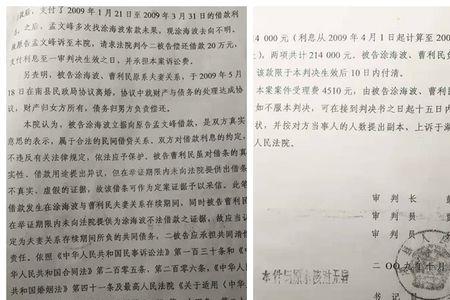 后，支付了 2009 年 1 月 21 日至 2009 年 3 月 31 日的借款利
息。之后，孟文峰多次找涂海波索款未果，现涂海波去向不明，
故原告孟文峰诉至本院，请求法院判令二被告偿还借款 20 万元，
支付利息至一审判决生效之日，并承担本案诉讼费。
另查明，被告涂海波、曹利民原系夫妻关系，于 2009 年 5
月 18 日在南县民政局协议离婚，协议中就财产与债务的处理达成协
议，财产归女方所有，债务归男方负责偿还。
本院认为，被告涂海波立据向原告孟文峰借款，是双方真实
意思的表示，属于合法的民间借贷关系，双方对借款利息的约定，
不违反有关法律规定，依法应予保护。被告曹利民虽对借条的真
实性、借款用途提出异议，但在举证期限内未向法院提供出借条
不真实、虚假的证据，故该借条可作为定案证据予以采信。此笔
借款发生在涂海波与曹利民夫妻关系存续期间，同时被告曹利民
在举证期限内未向法院提供为涂海波不法借款之证据，故应当认
定为夫妻关系存续期间所负的共同债务，二被告应承担共同清偿
责任。依照《中华人民共和国民事诉讼法》第一百三十条和《中
华人民共和国合同法》第二百零五条、第二百零六条，《中华人民
共和国婚姻法》第四十一条及最高人民法院《关于适用〈中华
14 000 元（利息从 2009 年 4 月 1 日起计算至 200
），两项共计 214 000 元，由被告涂海波、曹利民负
该款限于本判决生效后 10 日内付清。
本案案件受理费 4510 元，由被告涂海波、曹利民
如不服本判决，可在接到判决书之日起十五日内
状，并按对方当事人的人数提出副本，上诉于湖
人民法院。
审 判 长
审 判 员
审 判 员
二〇〇九年十月
本件与原本核对无异
书 记 员